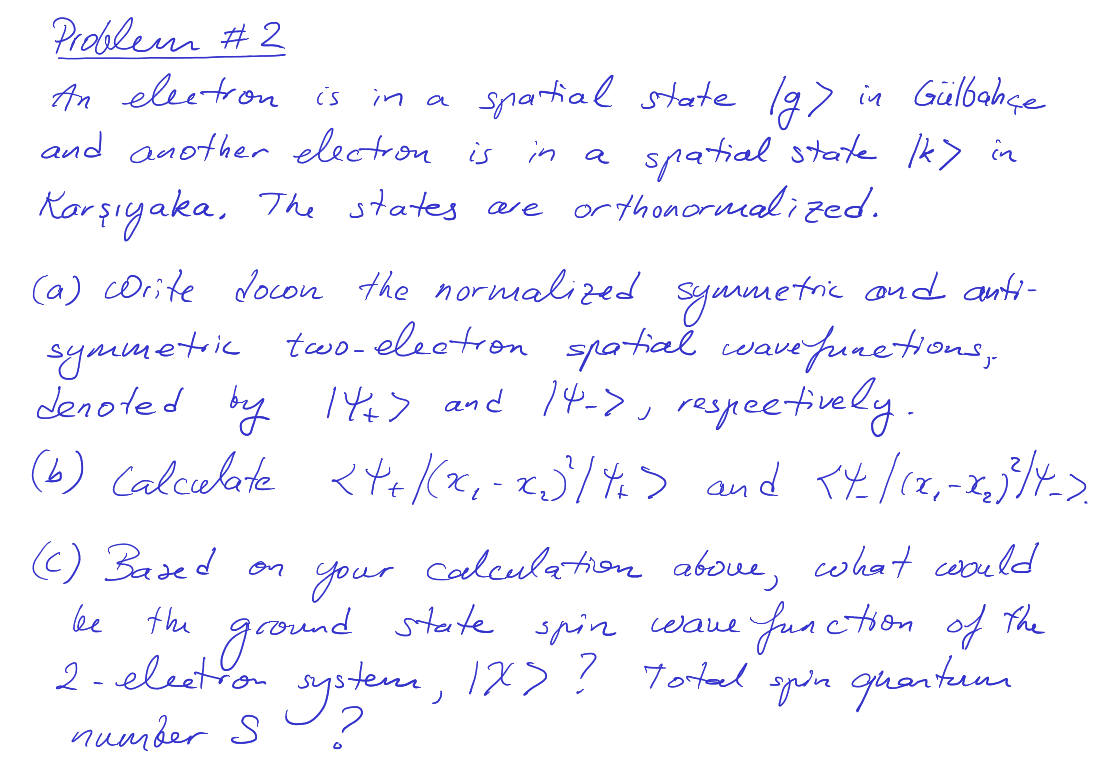 Problem #2
An electron is in a spatial state |g> in Gülbahçe
and another electron is in a spatial state |k> in
Karşıyaka. The states are orthonormalized.
(a) Write down the normalized symmetric and anti-
symmetric two-electron spatial wavefunctions,
denoted by |Ψ₊> and |Ψ₋>, respectively.
(b) Calculate <Ψ₊|(x₁-x₂)²|Ψ₊> and <Ψ₋|(x₁-x₂)²|Ψ₋>.
(c) Based on your calculation above, what would
be the ground state spin wave function of the
2-electron system, |χ>? Total spin quantum
number S ?